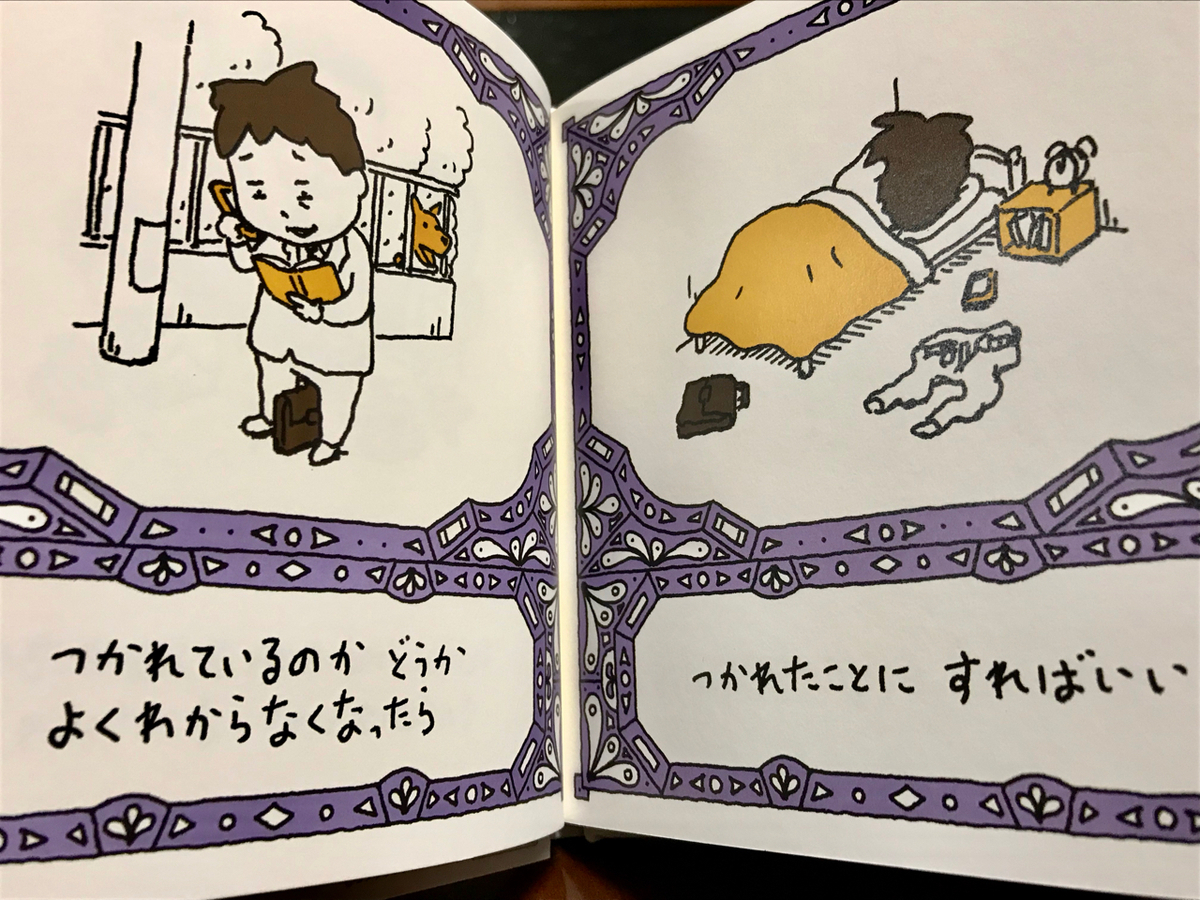 つかれているのか どうか
よくわからなくなったら
つかれたことに すればいい